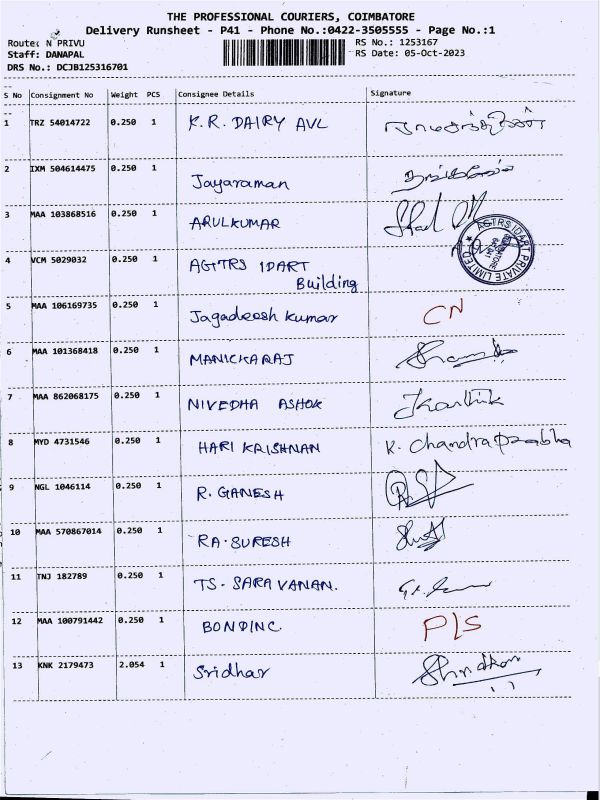 THE PROFESSIONAL COURIERS, COIMBATORE
Delivery Runsheet - P41 - Phone No.:0422-3505555 - Page No.:1
Route: N PRIVU
RS No.: 1253167
Staff: DANAPAL
RS Date: 05-Oct-2023
DRS No.: DCJB125316701
S No Consignment No Weight PCS Consignee Details Signature
1 TRZ 54014722 0.250 1 K.R. DAIRY AVL
2 IXM 504614475 0.250 1 Jayaraman
3 MAA 103868516 0.250 1 ARULKUMAR
4 VCM 5029032 0.250 1 AGITRS IDART
Building
AGTRS IDART PRIVATE LIMITED
5 MAA 106169735 0.250 1 Jagadeesh kumar CN
6 MAA 101368418 0.250 1 MANICKARAJ
7 MAA 862068175 0.250 1 NIVEDHA ASHOK Karthik
8 MYD 4731546 0.250 1 HARI KRISHNAN K. Chandraprabha
9 NGL 1046114 0.250 1 R. GANESH
10 MAA 570867014 0.250 1 RA. SURESH
11 TNJ 182789 0.250 1 TS. SARAVANAN.
12 MAA 100791442 0.250 1 BONDINC P/S
13 KNK 2179473 2.054 1 Sridhar